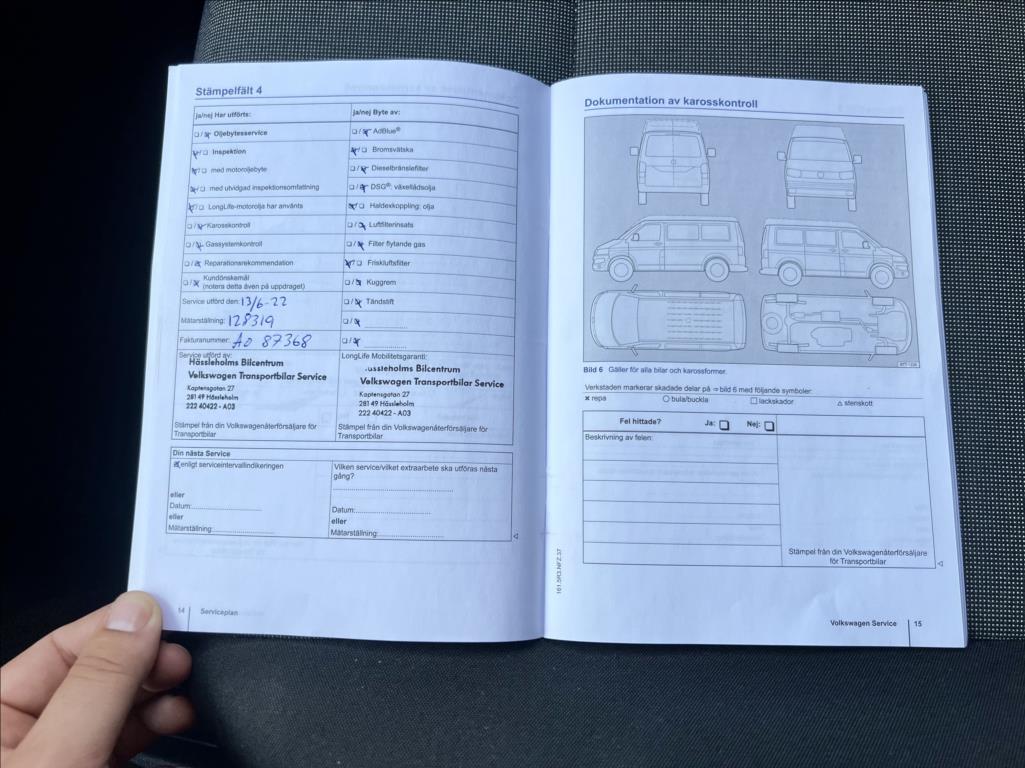 Stämpelfält 4
ja/nej Har utförts:
ja/nej Byte av:
Oljebytesservice
AdBlue®
Inspektion
Bromsvätska
med motoroljebyte
Dieselbränslefilter
med utvidgad inspektionsomfattning
DSG®: växellådsolja
LongLife-motorolja har använts
Haldexkoppling: olja
Karosskontroll
Luftfilterinsats
Gassystemkontroll
Filter flytande gas
Reparationsrekommendation
Friskluftsfilter
Kundönskemål
(notera detta även på uppdraget)
Kuggrem
Service utförd den: 13/6-22
Tändstift
Mätarställning: 128319
Fakturanummer: AO 87368
Service utförd av:
Hässleholms Bilcentrum
Volkswagen Transportbilar Service
Kaptensgatan 27
281 49 Hässleholm
222 40422 - A03
Stämpel från din Volkswagenåterförsäljare för
Transportbilar
LongLife Mobilitetsgaranti:
Hässleholms Bilcentrum
Volkswagen Transportbilar Service
Kaptensgatan 27
281 49 Hässleholm
222 40422 - A03
Stämpel från din Volkswagenåterförsäljare för
Transportbilar
Din nästa Service
enligt serviceintervallindikeringen
eller
Datum:
eller
Mätarställning:
Vilken service/vilket extraarbete ska utföras nästa
gång?
Datum:
eller
Mätarställning:
14 Serviceplan
Dokumentation av karosskontroll
Bild 6 Gäller för alla bilar och karossformer.
Verkstaden markerar skadade delar på ⇒ bild 6 med följande symboler:
× repa
○ bula/buckla
□ lackskador
△ stenskott
Fel hittade? Ja: Nej:
Beskrivning av felen:
Stämpel från din Volkswagenåterförsäljare
för Transportbilar
161.5R3.NFZ.37
Volkswagen Service 15